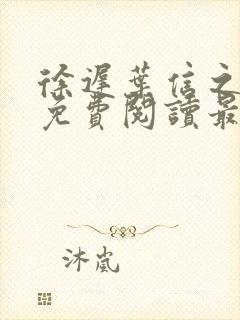 徐遲葉信之
免費閱讀最
沐嵐